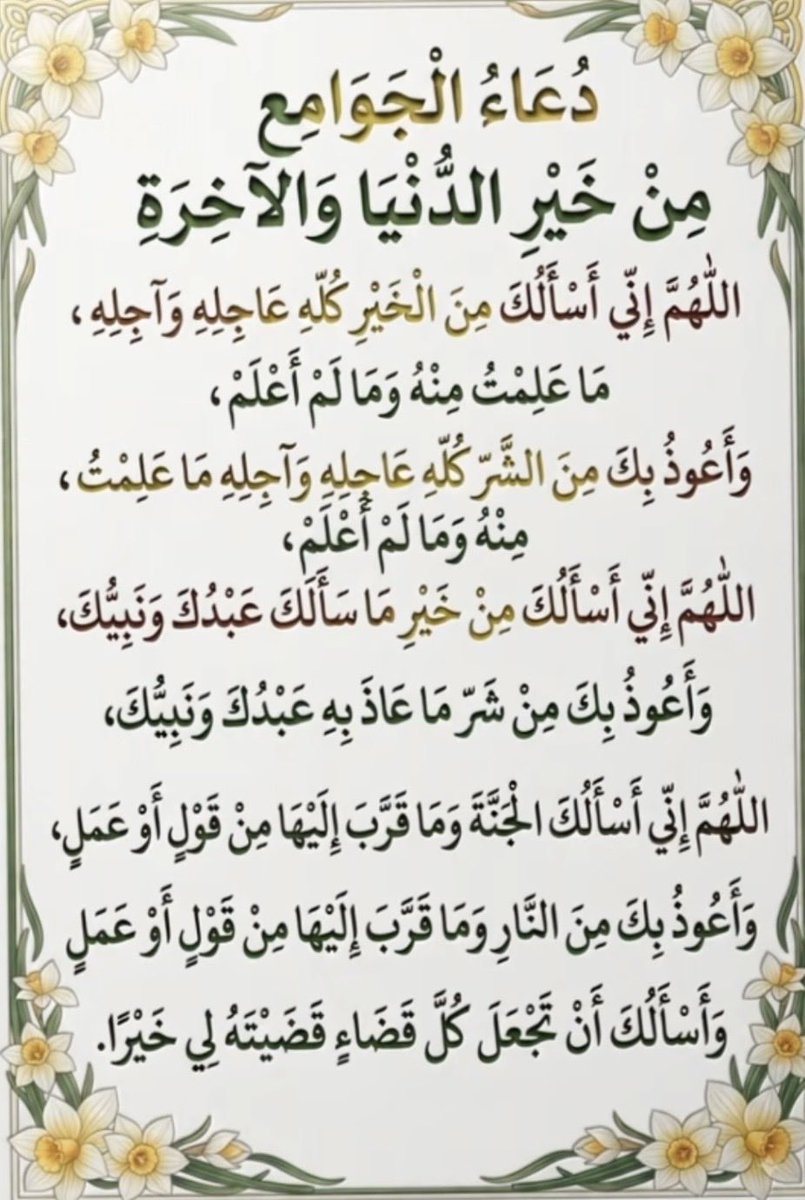 دُعَاءُ الْجَوَامِع
مِنْ خَيْرِ الدُّنْيَا وَالآخِرَةِ
اللّٰهُمَّ إِنِّي أَسْأَلُكَ مِنَ الْخَيْرِ كُلِّهِ عَاجِلِهِ وَآجِلِهِ ،
مَا عَلِمْتُ مِنْهُ وَمَا لَمْ أَعْلَمْ ،
وَأَعُوذُ بِكَ مِنَ الشَّرِّ كُلِّهِ عَاجِلِهِ وَآجِلِهِ مَا عَلِمْتُ ،
مِنْهُ وَمَا لَمْ أَعْلَمْ ،
اللّٰهُمَّ إِنِّي أَسْأَلُكَ مِنْ خَيْرِ مَا سَأَلَكَ عَبْدُكَ وَنَبِيُّكَ،
وَأَعُوذُ بِكَ مِنْ شَرِّ مَا عَاذَ بِهِ عَبْدُكَ وَنَبِيُّكَ،
اللّٰهُمَّ إِنِّي أَسْأَلُكَ الْجَنَّةَ وَمَا قَرَّبَ إِلَيْهَا مِنْ قَوْلٍ أَوْ عَمَلٍ،
وَأَعُوذُ بِكَ مِنَ النَّارِ وَمَا قَرَّبَ إِلَيْهَا مِنْ قَوْلٍ أَوْ عَمَلٍ
وَأَسْأَلُكَ أَنْ تَجْعَلَ كُلَّ قَضَاءٍ قَضَيْتَهُ لِي خَيْرًا.